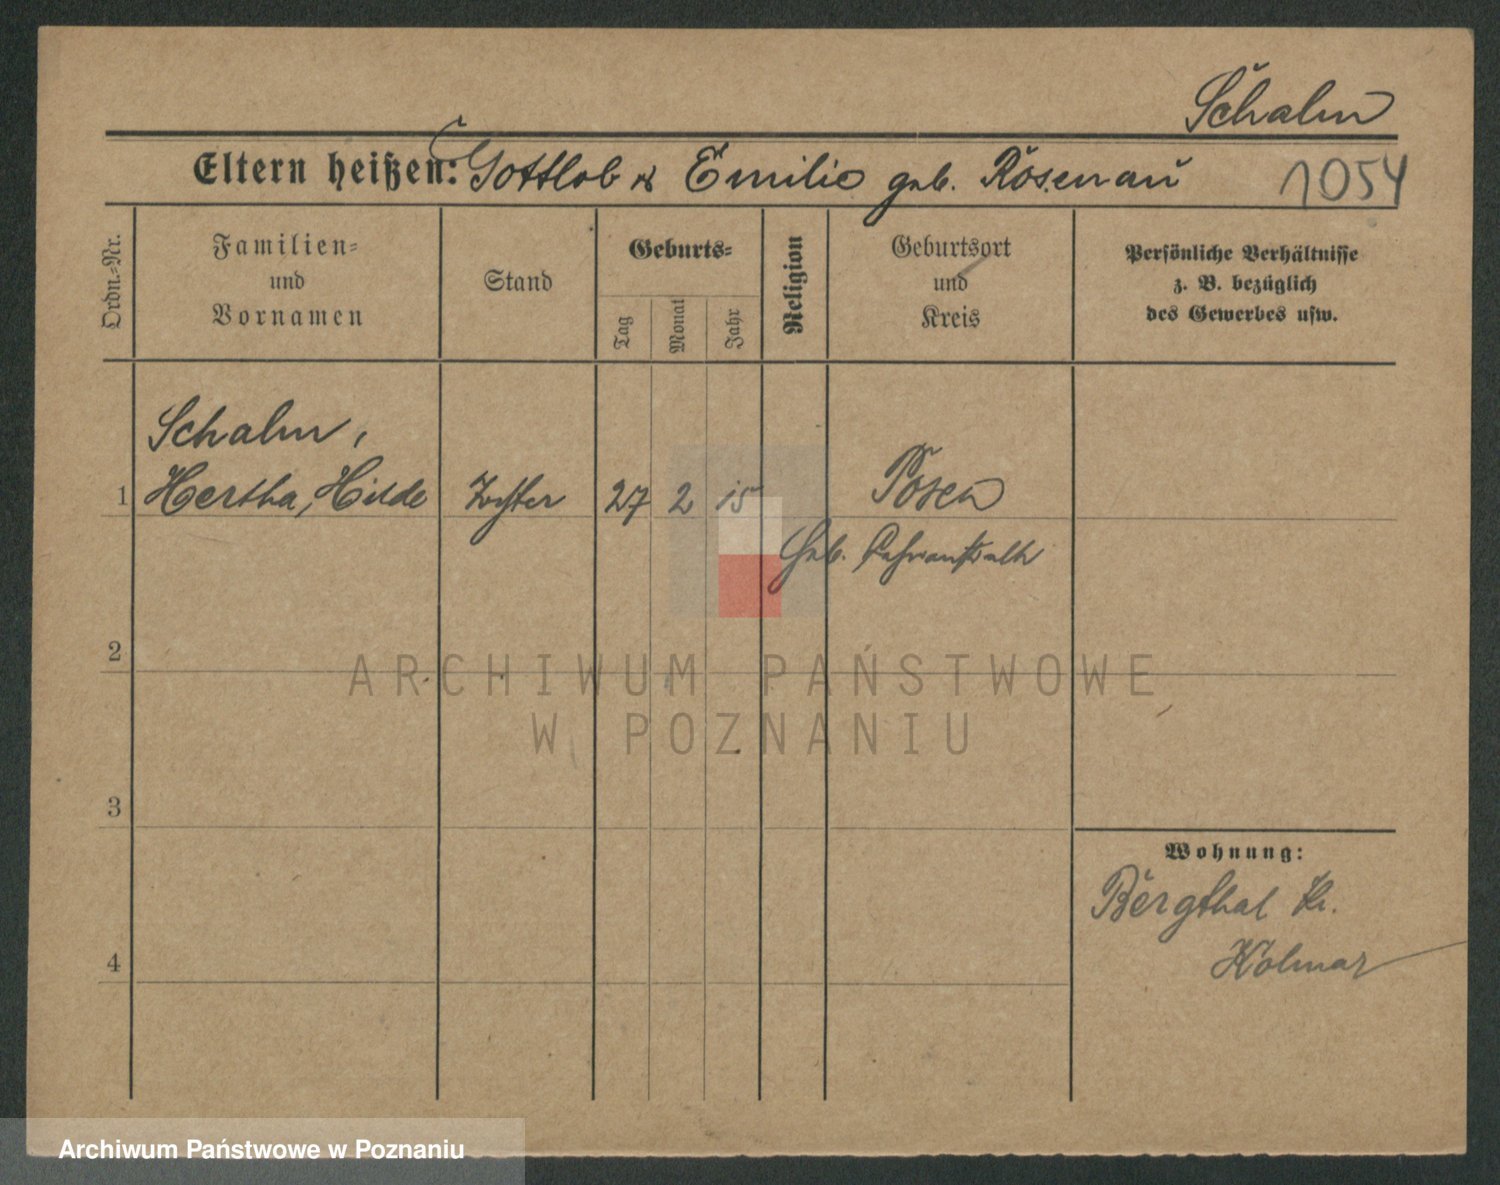 Schalm
Eltern heißen: Gottlob & Emilie geb. Rosenau
1054
Ordn.-Nr.
Familien-
und
Vornamen
Stand
Geburts-
Tag
Monat
Jahr
Religion
Geburtsort
und
Kreis
Persönliche Verhältnisse
z. B. bezüglich
des Gewerbes usw.
Schalm,
1 Hertha, Hilde
27 2 15 Posen
Geb.
2
ARCHIWUM PAŃSTWOWE
W POZNANIU
3
Wohnung:
Bergthal Kr.
Kolmar
4
Archiwum Państwowe w Poznaniu